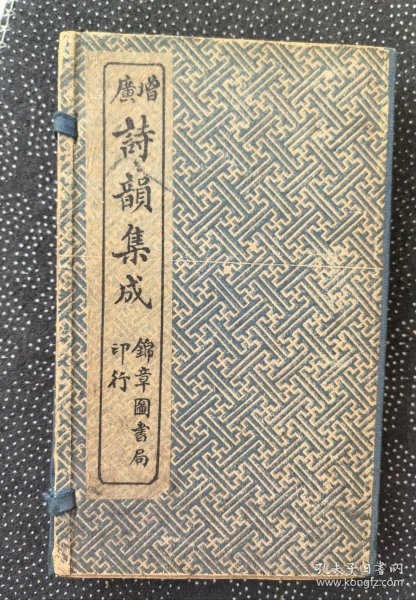 增廣
詩韻集成
錦章圖書局
印行
孔夫子旧书网
www.kongfz.com